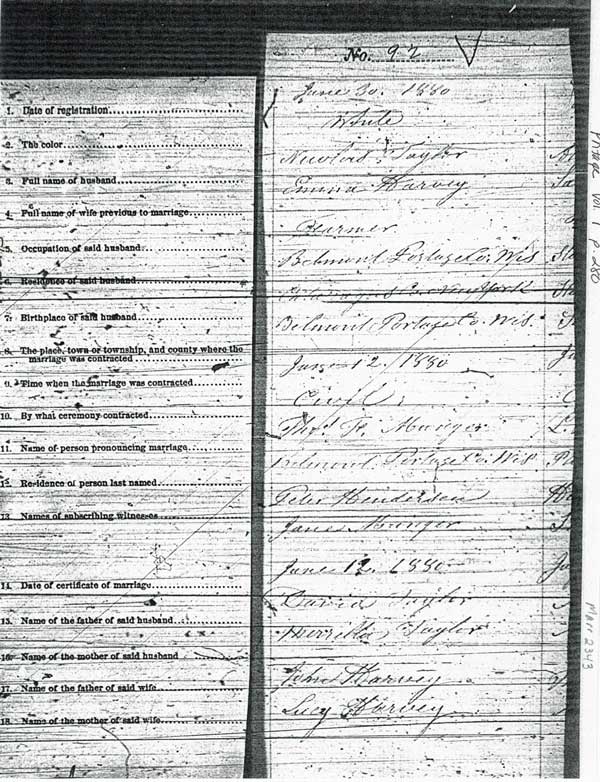 No. 92
1. Date of registration
June 30. 1880
2. The color
White
3. Full name of husband
Taylor
4. Full name of wife previous to marriage
Emma Harvey
5. Occupation of said husband
Farmer
6. Residence of said husband
Belmont Portage Co. Wis
7. Birthplace of said husband
Co New York
8. The place, town or township, and county where the
marriage was contracted
Belmont Portage Co. Wis.
9. Time when the marriage was contracted
June 12, 1880
10. By what ceremony contracted
Civil
11. Name of person pronouncing marriage
Munger
12. Residence of person last named
Belmont Portage Co. Wis
13. Names of subscribing witnesses
Peter Henderson
Jane Munger
14. Date of certificate of marriage
June 12. 1880
15. Name of the father of said husband
David Taylor
16. Name of the mother of said husband
Taylor
17. Name of the father of said wife
John Harvey
18. Name of the mother of said wife
Lucy Harvey
Vol. 1 p. 280